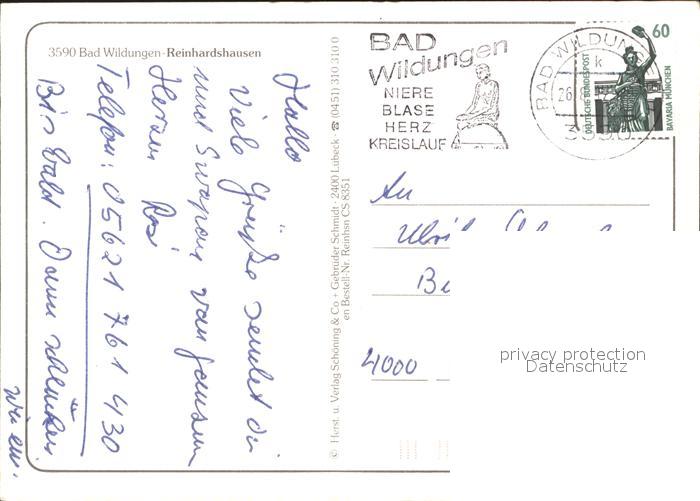 3590 Bad Wildungen-Reinhardshausen
Hallo
Viele Grüße sendet dir
und Swapan von ganzem
Herzen Rosi
Telefon: 05621 761430
Bis bald. Dann schlürfen
wir ein.
© Herst. u. Verlag Schöning & Co + Gebrüder Schmidt · 2400 Lübeck ☎ (0451) 310 310 0
en Bestell-Nr. Reinhsn CS 8351
BAD
Wildungen
NIERE
BLASE
HERZ
KREISLAUF
BAD WILDUN
k
26
60
DEUTSCHE BUNDESPOST
BAVARIA MÜNCHEN
An
4000
privacy protection
Datenschutz